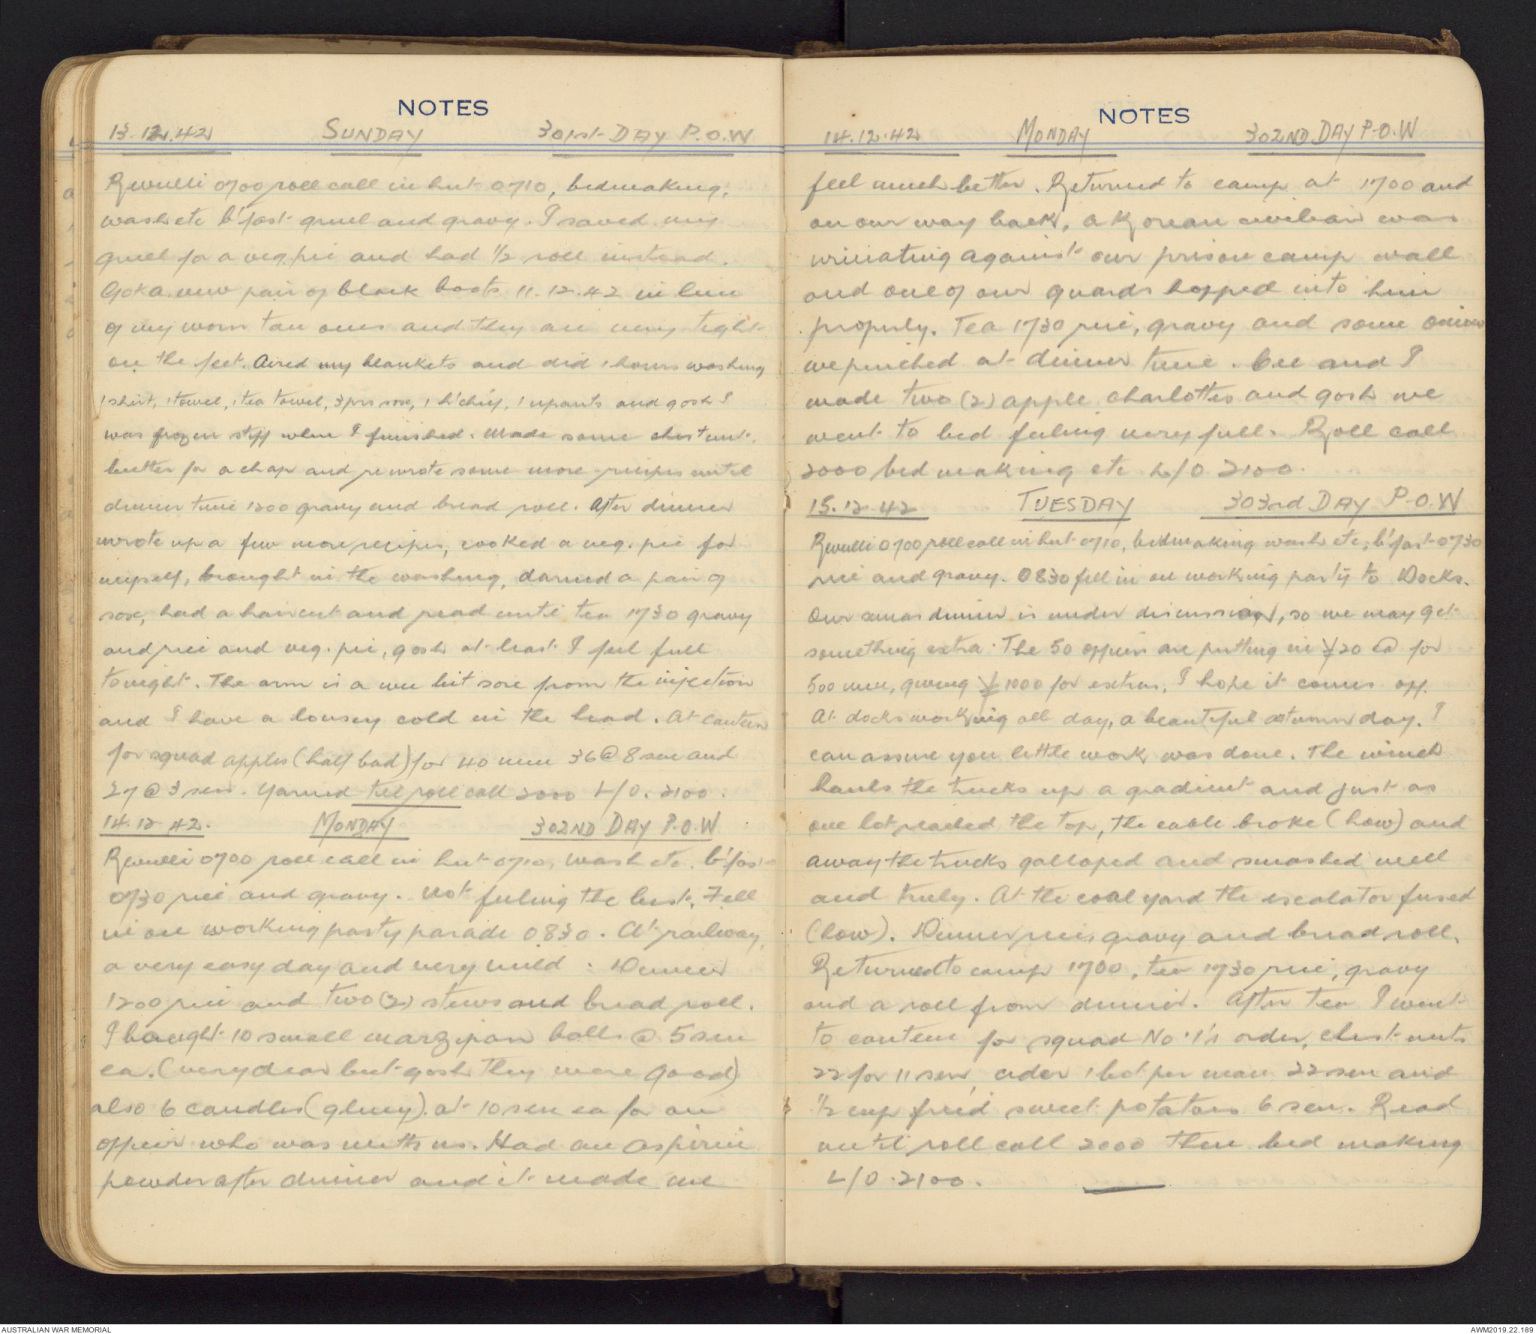 NOTES
13.12.42 SUNDAY 301st DAY P.O.W
Revielli 0700 roll call in hut 0710, bedmaking,
wash etc b'fast gruel and gravy. I saved my
gruel for a veg. pie and had 1/2 roll instead.
Got a new pair of black boots 11.12.42 in lieu
of my worn tan ones and they are very tight
on the feet. Aired my blankets and did 1 hours washing
1 shirt, 1 towel, 1 tea towel, 3 prs sox, 1 h'chief, 1 u pants and gosh I
was frozen stiff when I finished. Made some chestnut
butter for a chap and rewrote some more recipes until
dinner time 1200 gravy and bread roll. After dinner
wrote up a few more recipes, cooked a veg. pie for
myself, brought in the washing, darned a pair of
sox, had a haircut and read until tea 1730 gravy
and rice and veg. pie, gosh at least I feel full
tonight. The arm is a wee bit sore from the injection
and I have a lousey cold in the head. At canteen
for squad apples (half bad) for 40 men 36 @ 8 sen and
27 @ 3 sen. Yarned till roll call 2000 L/O. 2100.
14.12.42. MONDAY 302ND DAY P.O.W
Revielli 0700 roll call in hut 0710, wash etc. b'fast
0730 rice and gravy. Not feeling the best. Fell
in on working party parade 0830. At railway,
a very easy day and very mild. Dinner
1200 rice and two (2) stews and bread roll.
I bought 10 small marzipan balls @ 5 sen
ea. (very dear but gosh they were good)
also 6 candles (gluey). at 10 sen ea for an
officer who was with us. Had an aspirin
powder after dinner and it made me
NOTES
14.12.42 MONDAY 302ND DAY P.O.W
feel much better. Returned to camp at 1700 and
on our way back, a Korean civilian was
urinating against our prison camp wall
and one of our guards hopped into him
properly. Tea 1730 rice, gravy and some onions
we pinched at dinner time. Cec and I
made two (2) apple charlottes and gosh we
went to bed feeling very full. Roll call
2000 bed making etc L/O 2100.
15.12.42 TUESDAY 303rd DAY P.O.W
Revielli 0700 roll call in hut 0710, bedmaking wash etc, b'fast 0730
rice and gravy. 0830 fell in on working party to Docks.
Our xmas dinner is under discussion, so we may get
something extra. The 50 officers are putting in ¥20 ea for
500 men, giving ¥1000 for extras, I hope it comes off.
At docks working all day, a beautiful autumn day. I
can assure you little work was done. The winch
hauls the trucks up a gradient and just as
one lot reached the top, the cable broke (how) and
away the trucks galloped and smashed well
and truly. At the coal yard the escalator fused
(how). Dinner rice gravy and bread roll.
Returned to camp 1700, tea 1730 rice, gravy
and a roll from dinner. After tea I went
to canteen for squad No 1's order, chestnuts
22 for 11 sen, cider 1 bot per man 22 sen and
1/2 cup fried sweet potatoes 6 sen. Read
until roll call 2000 then bed making
L/O. 2100.
AUSTRALIAN WAR MEMORIAL
AWM2019.22.189